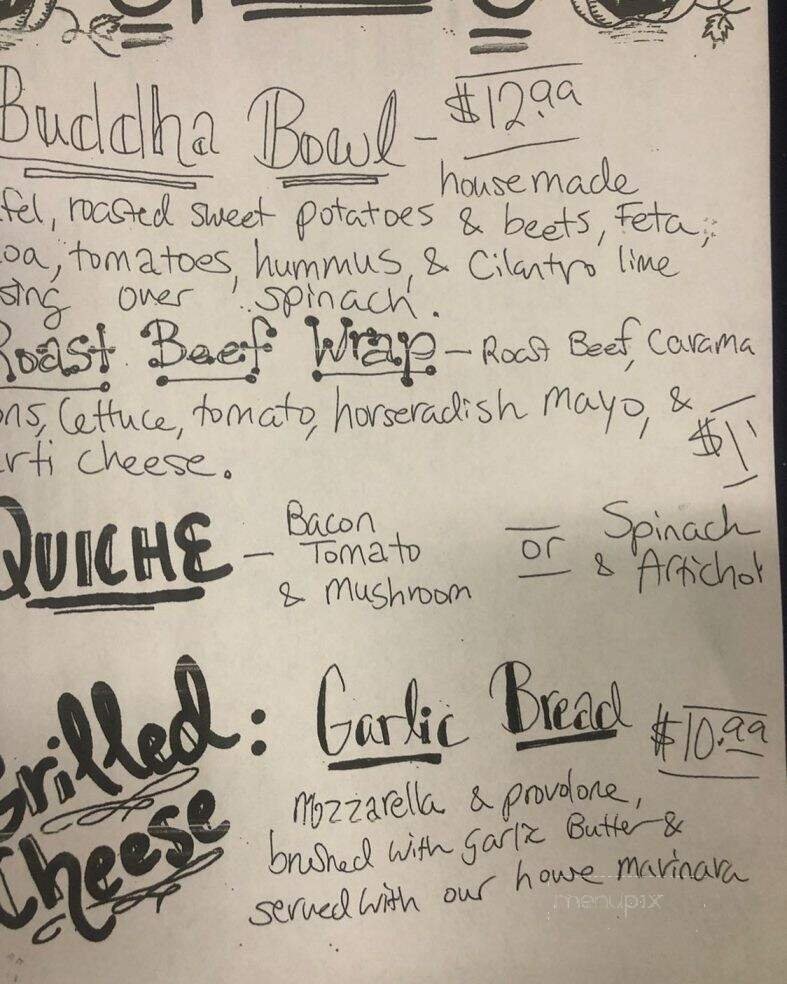 Buddha Bowl - $12.99
housemade
fel, roasted sweet potatoes & beets, Feta,
oa, tomatoes, hummus, & Cilantro lime
sing over spinach.
Roast Beef Wrap - Roast Beef, Carama
ons, lettuce, tomato, horseradish mayo, &
$11
arti cheese.
QUICHE - Bacon Tomato & Mushroom or Spinach & Artichok
Grilled Cheese : Garlic Bread $10.99
Mozzarella & provolone,
brushed with garlic Butter &
served with our howe marinara
menupix